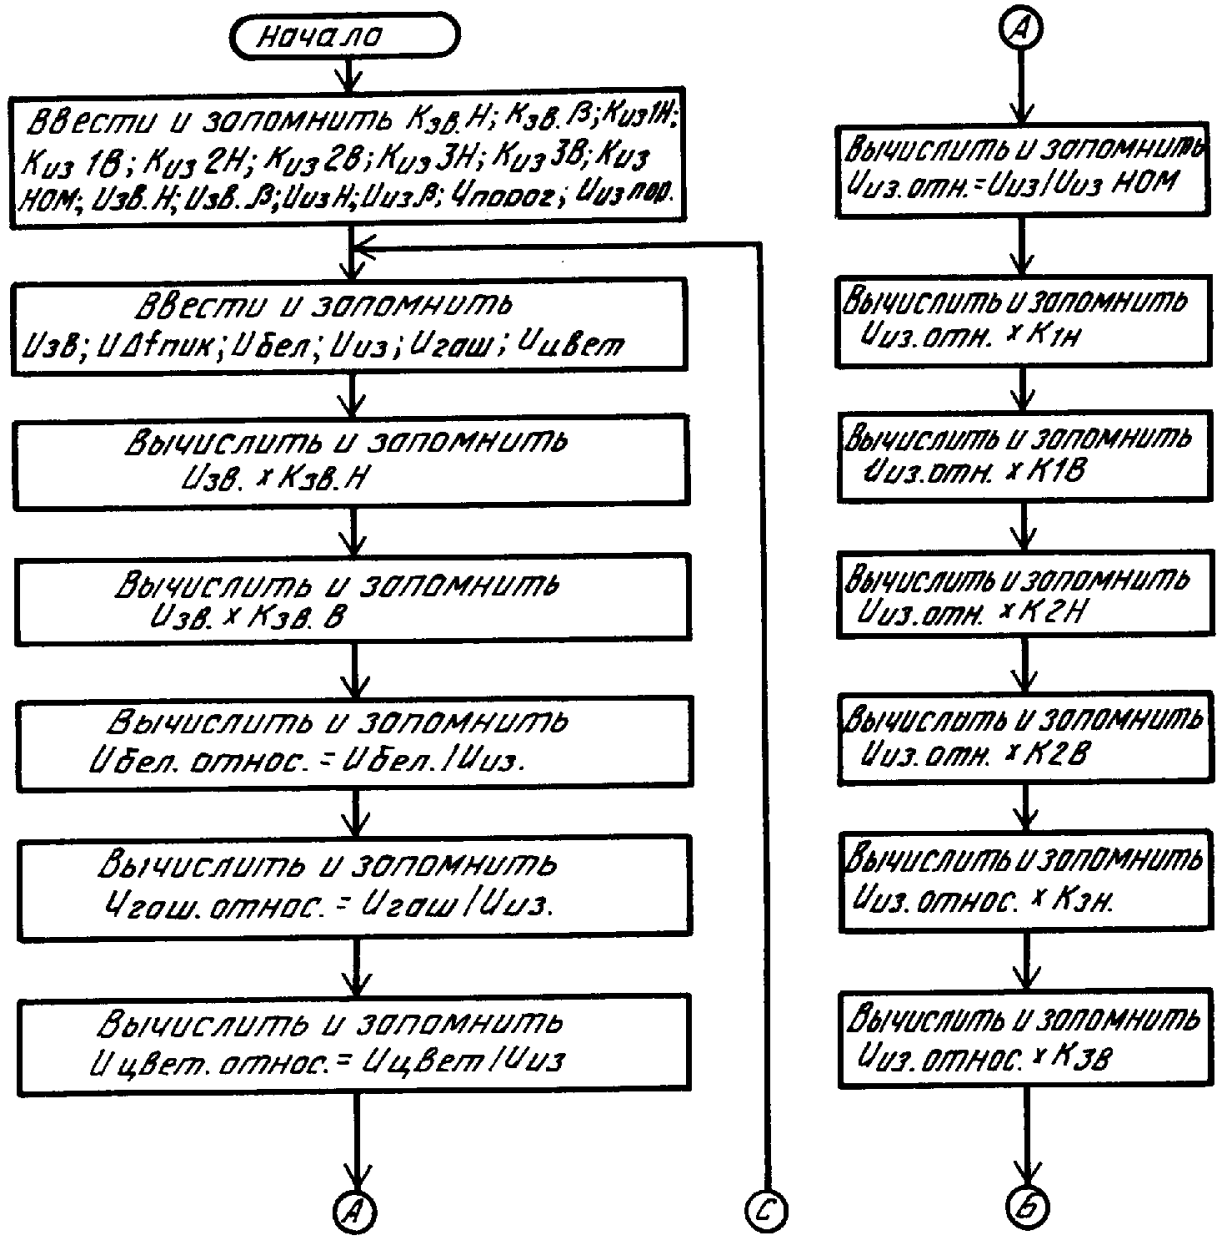 Начало
Ввести и запомнить Kзв.Н; Kзв.В; Kиз1Н;
Kиз 1В; Kиз 2Н; Kиз 2В; Kиз 3Н; Kиз 3В; Kиз
НОМ; Uзв.Н; Uзв.В; Uиз Н; Uиз В; Uпорог; Uиз пор.
Ввести и запомнить
Uзв; UΔfпик; Uбел; Uиз; Uгаш; Uцвет
Вычислить и запомнить
Uзв. x Kзв.Н
Вычислить и запомнить
Uзв. x Kзв. В
Вычислить и запомнить
Uбел. относ. = Uбел./Uиз.
Вычислить и запомнить
Uгаш. относ. = Uгаш/Uиз.
Вычислить и запомнить
Uцвет. относ. = Uцвет/Uиз
А
С
А
Вычислить и запомнить
Uиз.отн. = Uиз/Uиз НОМ
Вычислить и запомнить
Uиз.отн. x K1н
Вычислить и запомнить
Uиз.отн. x K1В
Вычислить и запомнить
Uиз.отн. x K2Н
Вычислить и запомнить
Uиз.отн. x K2В
Вычислить и запомнить
Uиз.относ. x K3н.
Вычислить и запомнить
Uиз.относ. x K3В
Б